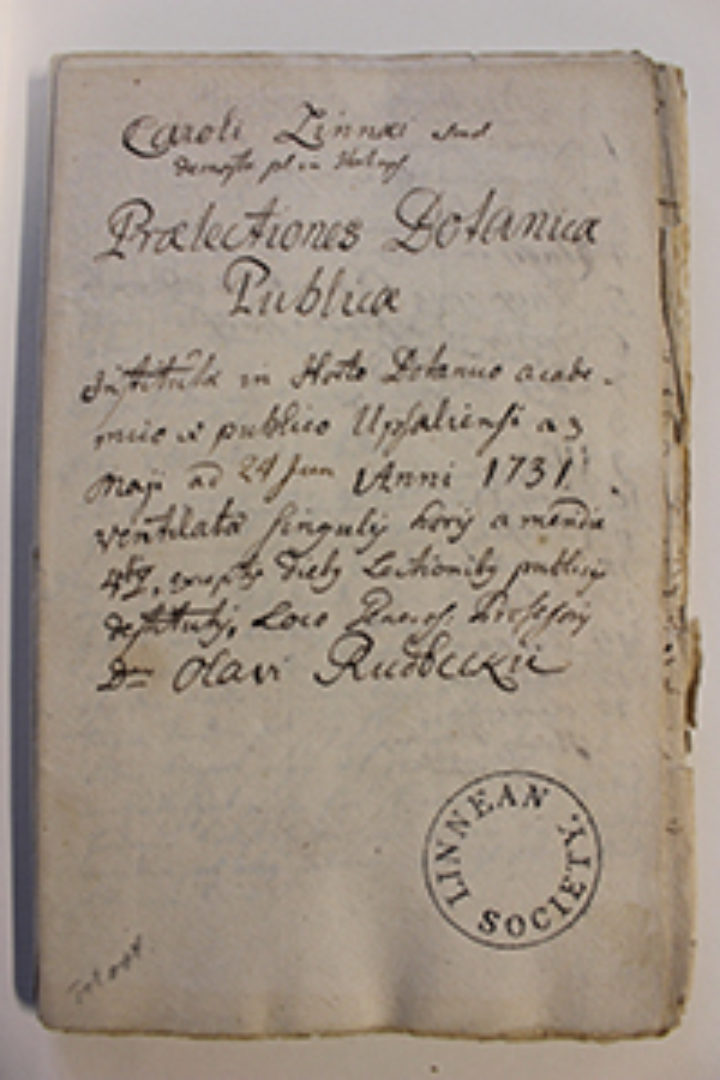 Caroli Linnæi
Prælectiones Botanicæ
Publicæ
Institutæ in Horto Botanico acade-
mico & publico Upsaliensi a 3
Maji ad 24 Jun Anni 1731.
ventilatæ singulis horis a meridie
exceptis diebus Lectionibus publicis
destitutis, Loco Generos. Professoris
Dn Olavi Rudbeckii
LINNEAN SOCIETY.